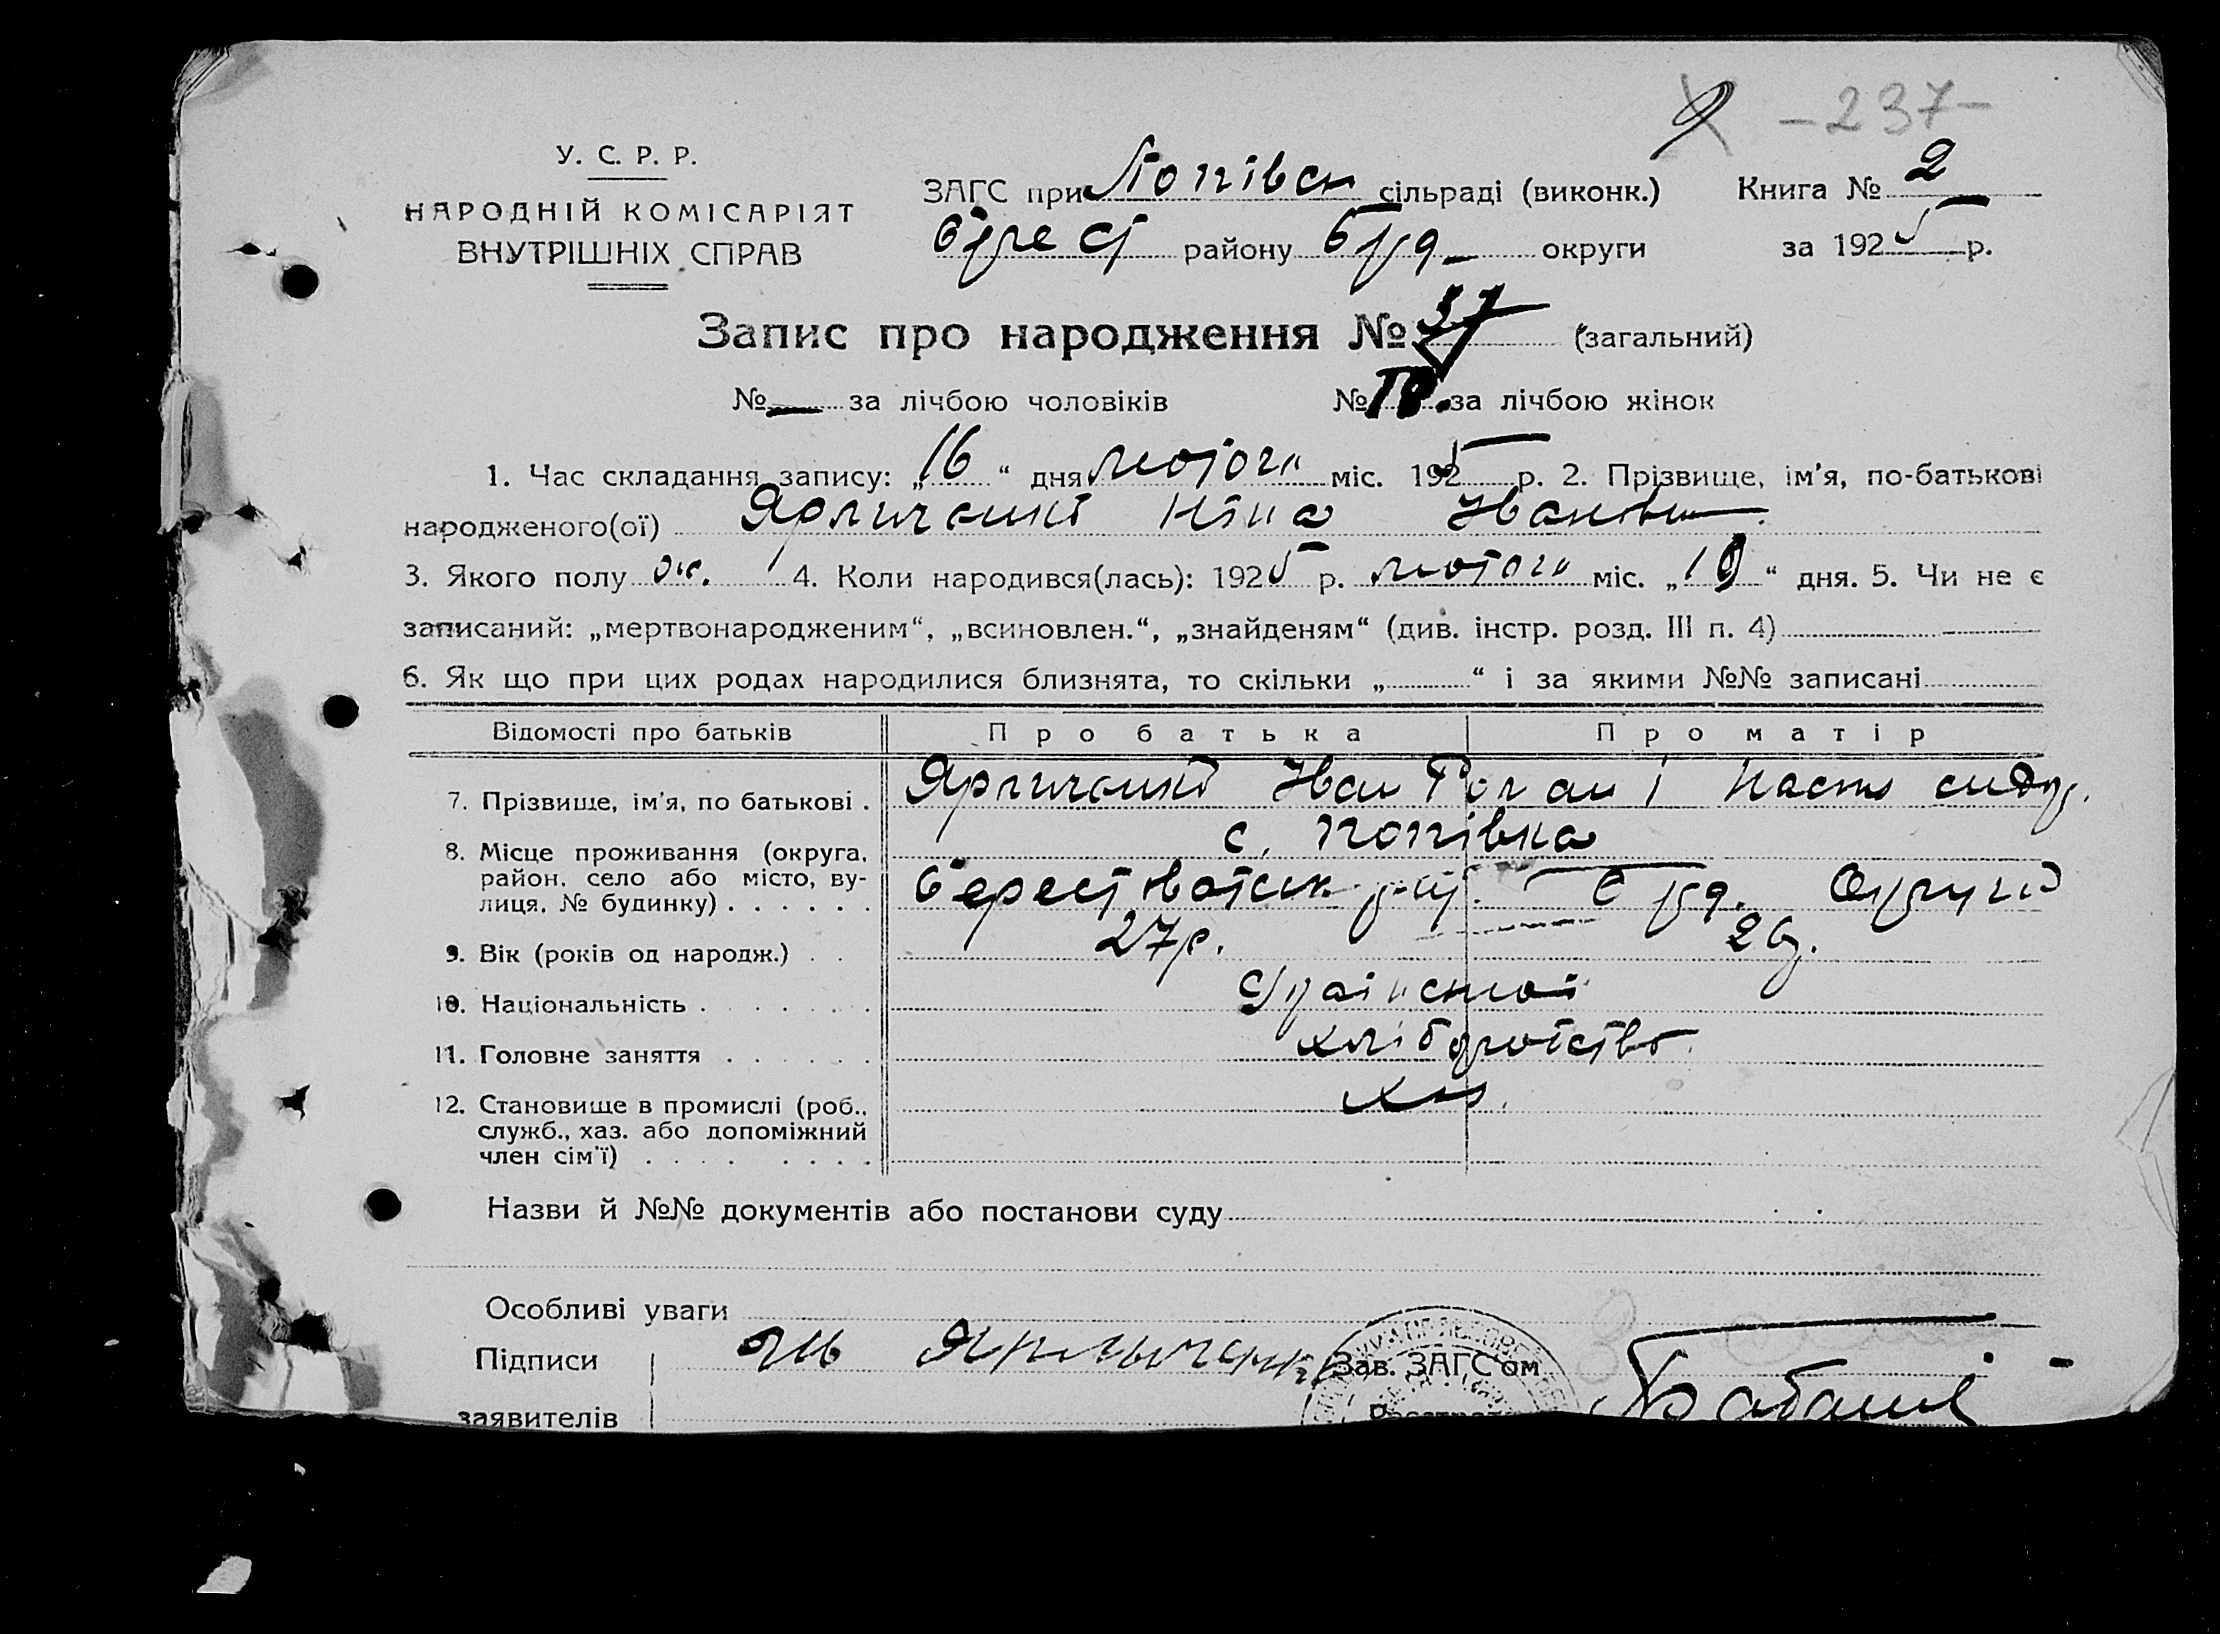 -237-
У. С. Р. Р.
НАРОДНІЙ КОМІСАРІЯТ
ВНУТРІШНІХ СПРАВ
ЗАГС при Попівск сільраді (виконк.) Книга № 2
Берест району Берд округи за 1925 р.
Запис про народження № 37 (загальний)
№ — за лічбою чоловіків № за лічбою жінок
1. Час складання запису: „16“ дня лютого міс. 1925 р. 2. Прізвище, ім'я, по-батькові
народженого(ої) Ніна Іванівн
3. Якого полу ж. 4. Коли народився(лась): 1925 р. лютого міс. „10“ дня. 5. Чи не є
записаний: „мертвонародженим“, „всиновлен.“, „знайденям“ (див. інстр. розд. III п. 4)
6. Як що при цих родах народилися близнята, то скільки „ “ і за якими №№ записані
Відомості про батьків Про батька Про матір
7. Прізвище, ім'я, по батькові . Іван Роман і Настя сидор.
8. Місце проживання (округа, с. Попівка
район, село або місто, ву-
лиця, № будинку) . . . . . . Берестоватск рай. Берд. Округи
9. Вік (років од народж.) . . 27р.
10. Національність . . . . . .
11. Головне заняття . . . . . хліборобство
12. Становище в промислі (роб., хаз.
служб., хаз. або допоміжний
член сім'ї) . . . . . . . .
Назви й №№ документів або постанови суду
Особливі уваги
Підписи Зав. ЗАГС'ом
заявителів